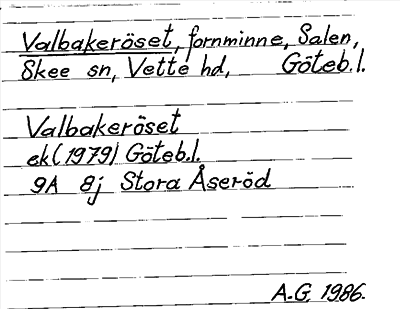 Valbakeröset, fornminne, Salen,
Skee sn, Vette hd, Göteb.l.
Valbakeröset
ek (1979) Göteb.l.
9A 8j Stora Åseröd
A.G. 1986.